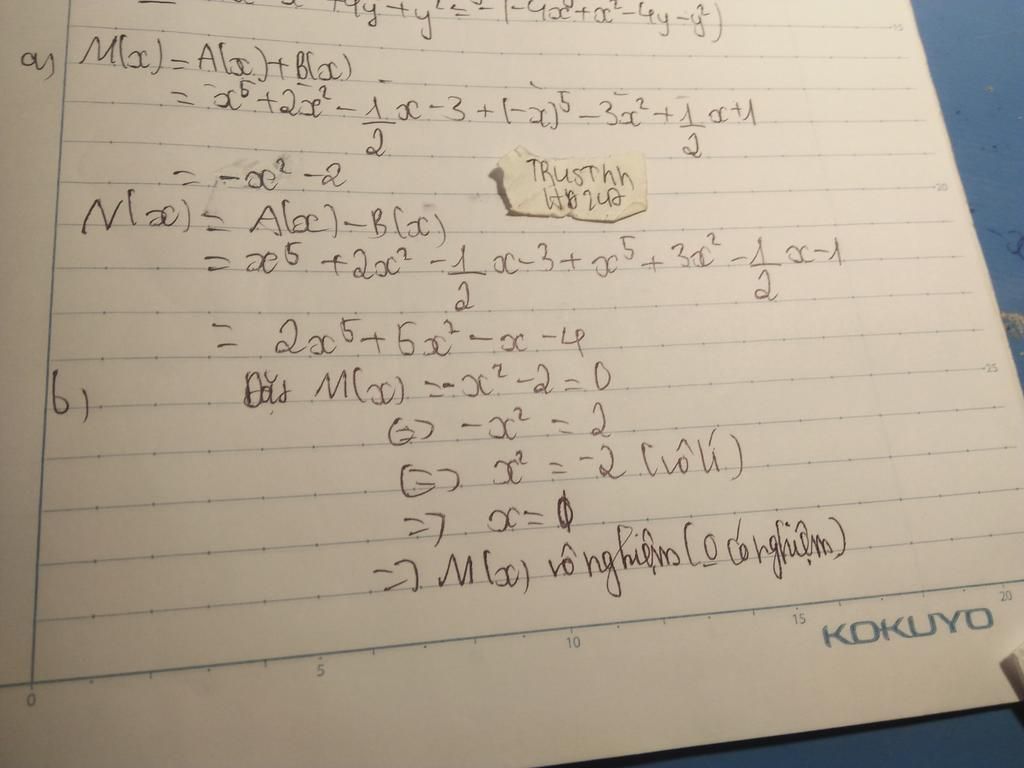 +4y+y² = (-4x³+x²-4y-y²)
a) M(x) = A(x)+B(x)
= x⁵+2x²-1/2x-3+(-x)⁵-3x²+1/2x+1
= -x²-2
N(x) = A(x)-B(x)
= x⁵+2x²-1/2x-3+x⁵+3x²-1/2x-1
= 2x⁵+5x²-x-4
b) Đặt M(x) = -x²-2=0
⇔ -x² = 2
⇔ x² = -2 (vô lí)
⇒ x=
⇒ M(x) vô nghiệm (0 có nghiệm)
KOKUYO
0 5 10 15 20
20
25